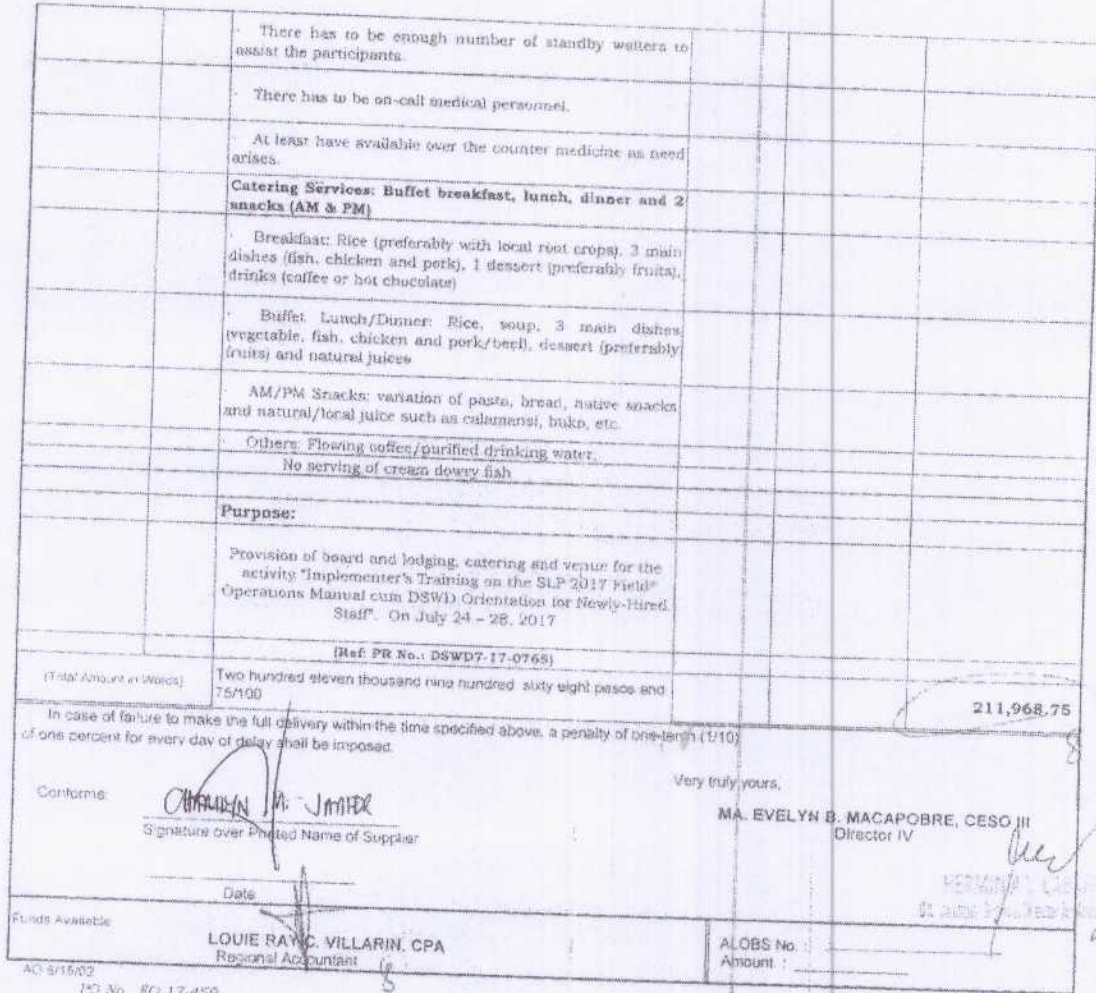 · There has to be enough number of standby waiters to
assist the participants.
· There has to be on-call medical personnel.
· At least have available over the counter medicine as need
arises.
Catering Services: Buffet breakfast, lunch, dinner and 2
snacks (AM & PM)
· Breakfast: Rice (preferably with local root crops), 3 main
dishes (fish, chicken and pork), 1 dessert (preferably fruits),
drinks (coffee or hot chocolate)
· Buffet Lunch/Dinner: Rice, soup, 3 main dishes
(vegetable, fish, chicken and pork/beef), dessert (preferably
fruits) and natural juices
· AM/PM Snacks: variation of pasta, bread, native snacks
and natural/local juice such as calamansi, buko, etc.
· Others: Flowing coffee/purified drinking water.
No serving of cream dowry fish
Purpose:
Provision of board and lodging, catering and venue for the
activity "Implementer's Training on the SLP 2017 Field
Operations Manual cum DSWD Orientation for Newly-Hired
Staff". On July 24 – 28, 2017
(Ref: PR No.: DSWD7-17-0765)
(Total Amount in Words)
Two hundred eleven thousand nine hundred sixty eight pesos and
75/100
211,968.75
In case of failure to make the full delivery within the time specified above, a penalty of one-tenth (1/10)
of one percent for every day of delay shall be imposed.
Conforme:
Very truly yours,
Signature over Printed Name of Supplier
MA. EVELYN B. MACAPOBRE, CESO III
Director IV
Date
Funds Available
LOUIE RAY C. VILLARIN, CPA
Regional Accountant
ALOBS No. :
Amount :
AO 5/15/02
PO No. RO 17-459